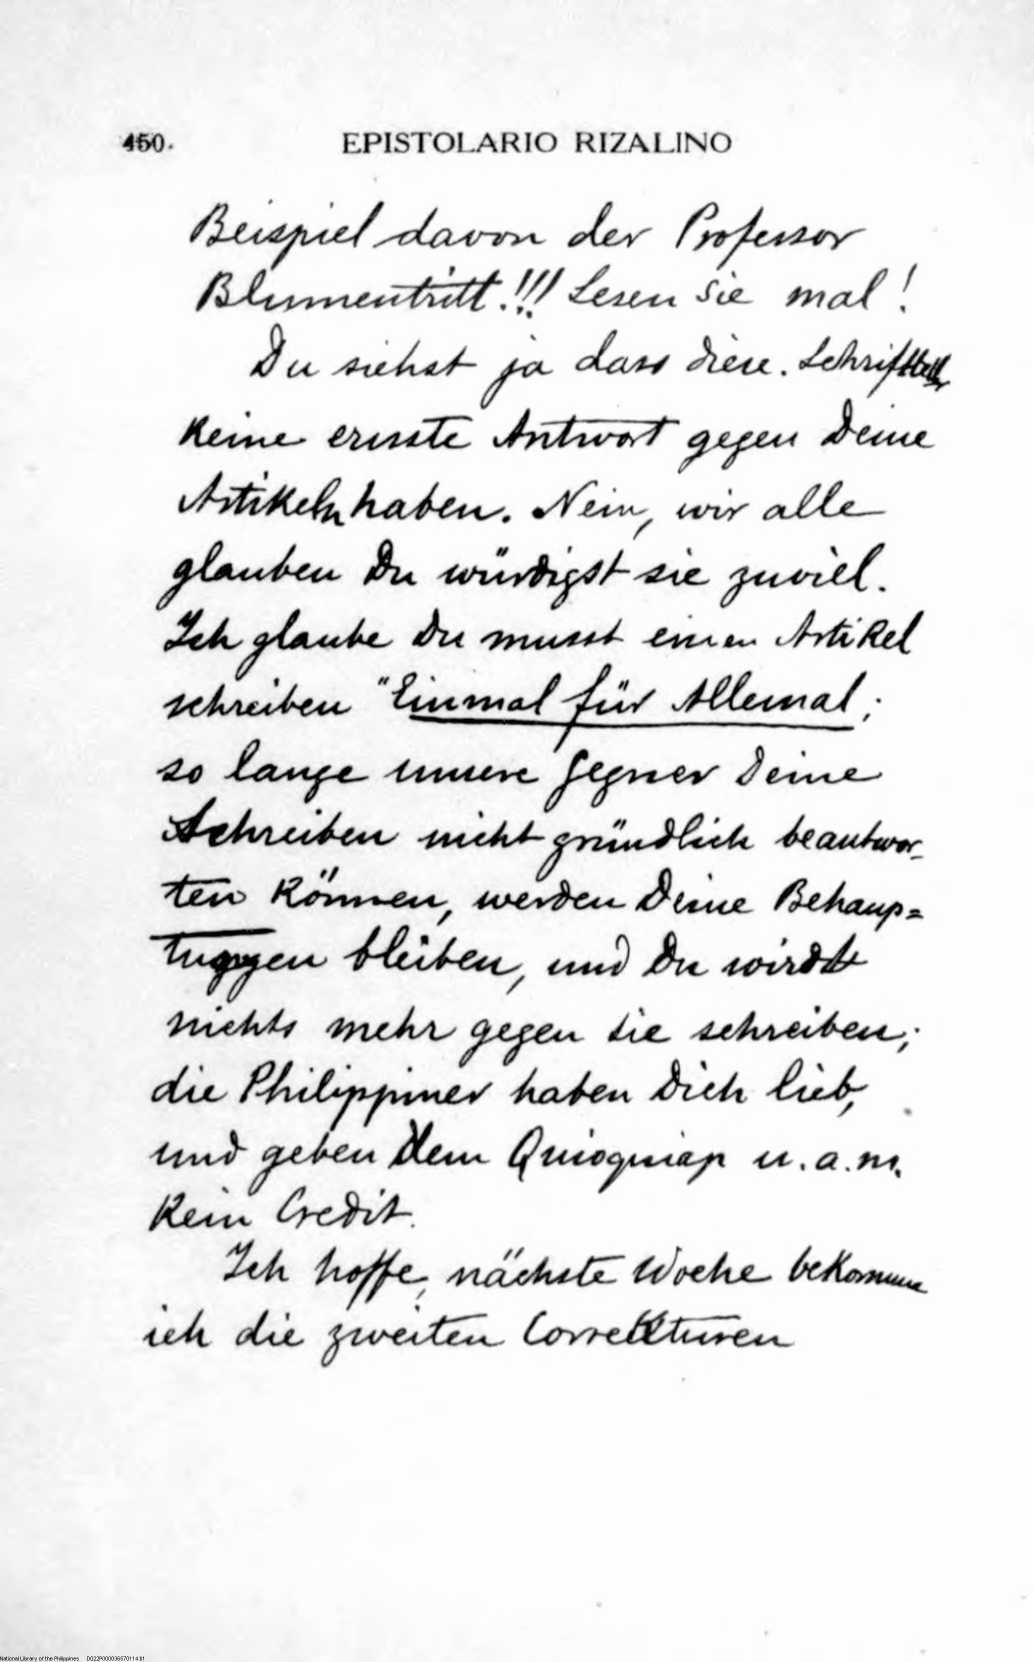 450.
EPISTOLARIO RIZALINO
Beispiel davon der Professor
Blumentritt!!! Lesen Sie mal!
Du siehst ja dass diese Schriftsteller
keine ernste Antwort gegen Deine
Artikeln haben. Nein, wir alle
glauben Du würdigst sie zuviel.
Ich glaube Du musst einen Artikel
schreiben "Einmal für Allemal;
so lange unsere Gegner Deine
Schreiben nicht gründlich beantwor-
ten können, werden Deine Behaup=
tungen bleiben, und Du wirdst
nichts mehr gegen sie schreiben;
die Philippiner haben Dich lieb,
und geben dem Quioquiap u. a. m.
kein Credit.
Ich hoffe, nächste Woche bekomme
ich die zweiten Correkturen
National Library of the Philippines